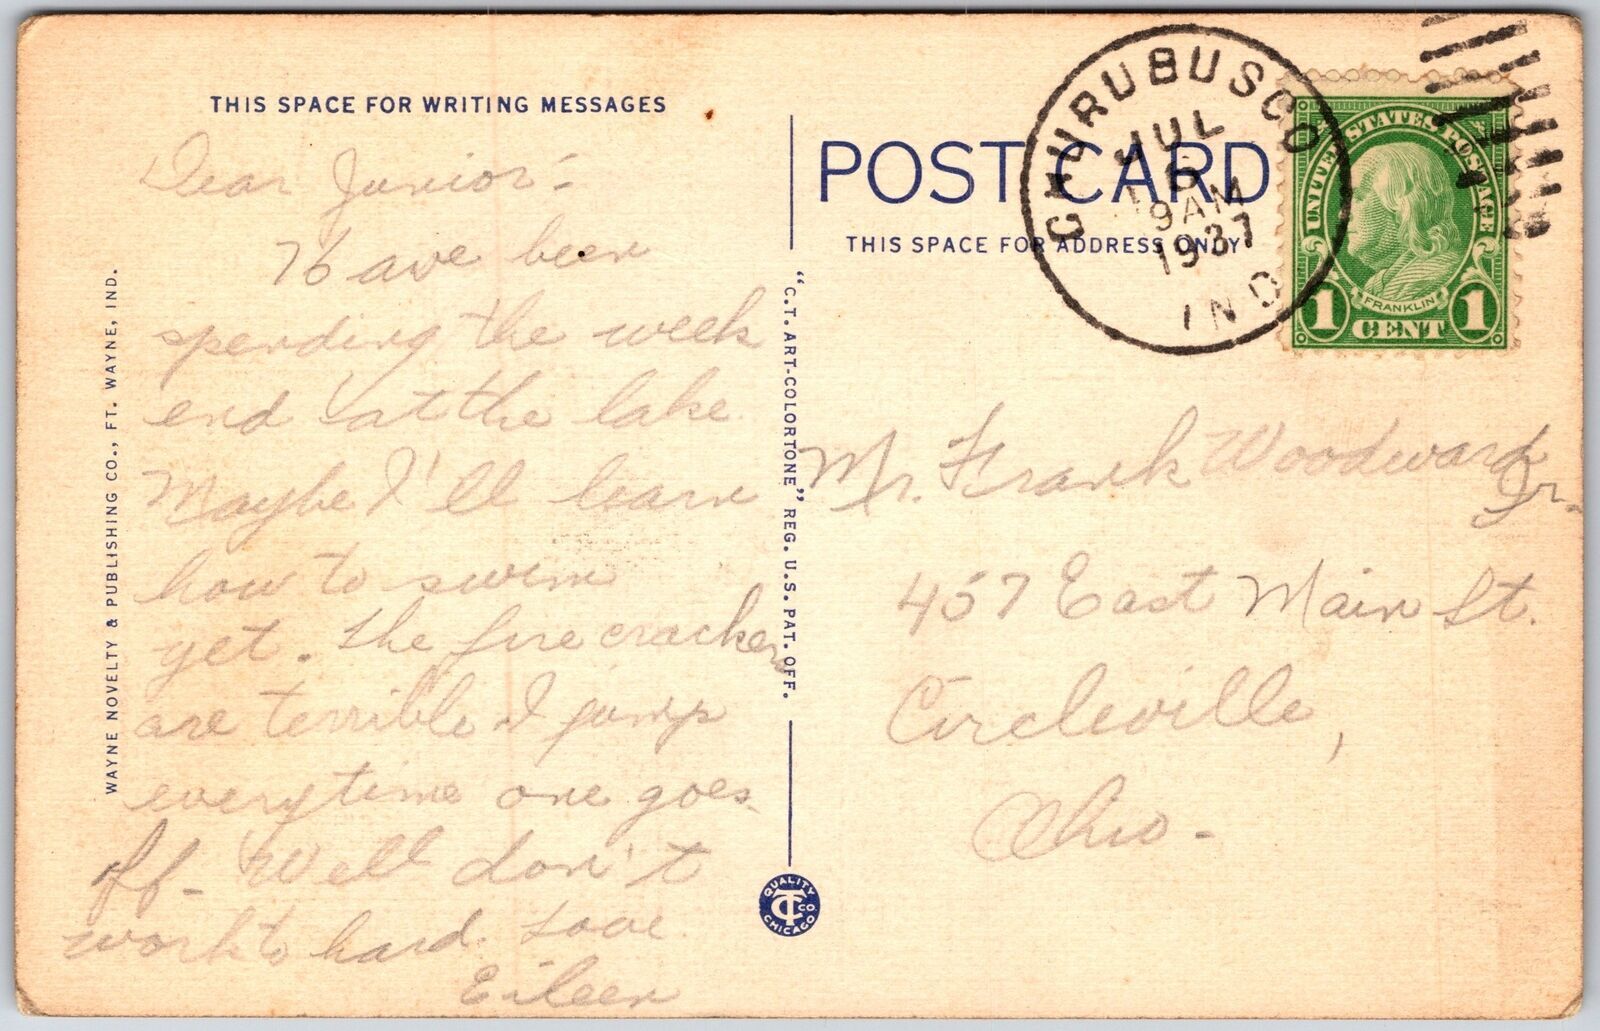 THIS SPACE FOR WRITING MESSAGES
Dear Junior:-
Have been
spending the week
end at the lake.
Maybe I'll learn
how to swim
yet. The fire crackers
are terrible. I jump
everytime one goes
off - Well don't
work to hard. Love.
Eileen
WAYNE NOVELTY & PUBLISHING CO., FT. WAYNE, IND.
"C.T. ART-COLORTONE" REG. U.S. PAT. OFF.
QUALITY
CT CO.
CHICAGO
POST CARD
THIS SPACE FOR ADDRESS ONLY
CHURUBUSCO
JUL
6
9 AM
1937
IND
UNITED STATES POSTAGE
FRANKLIN
1 CENT 1
Mr. Frank Woodward
Jr.
457 East Main St.
Circleville,
Ohio -